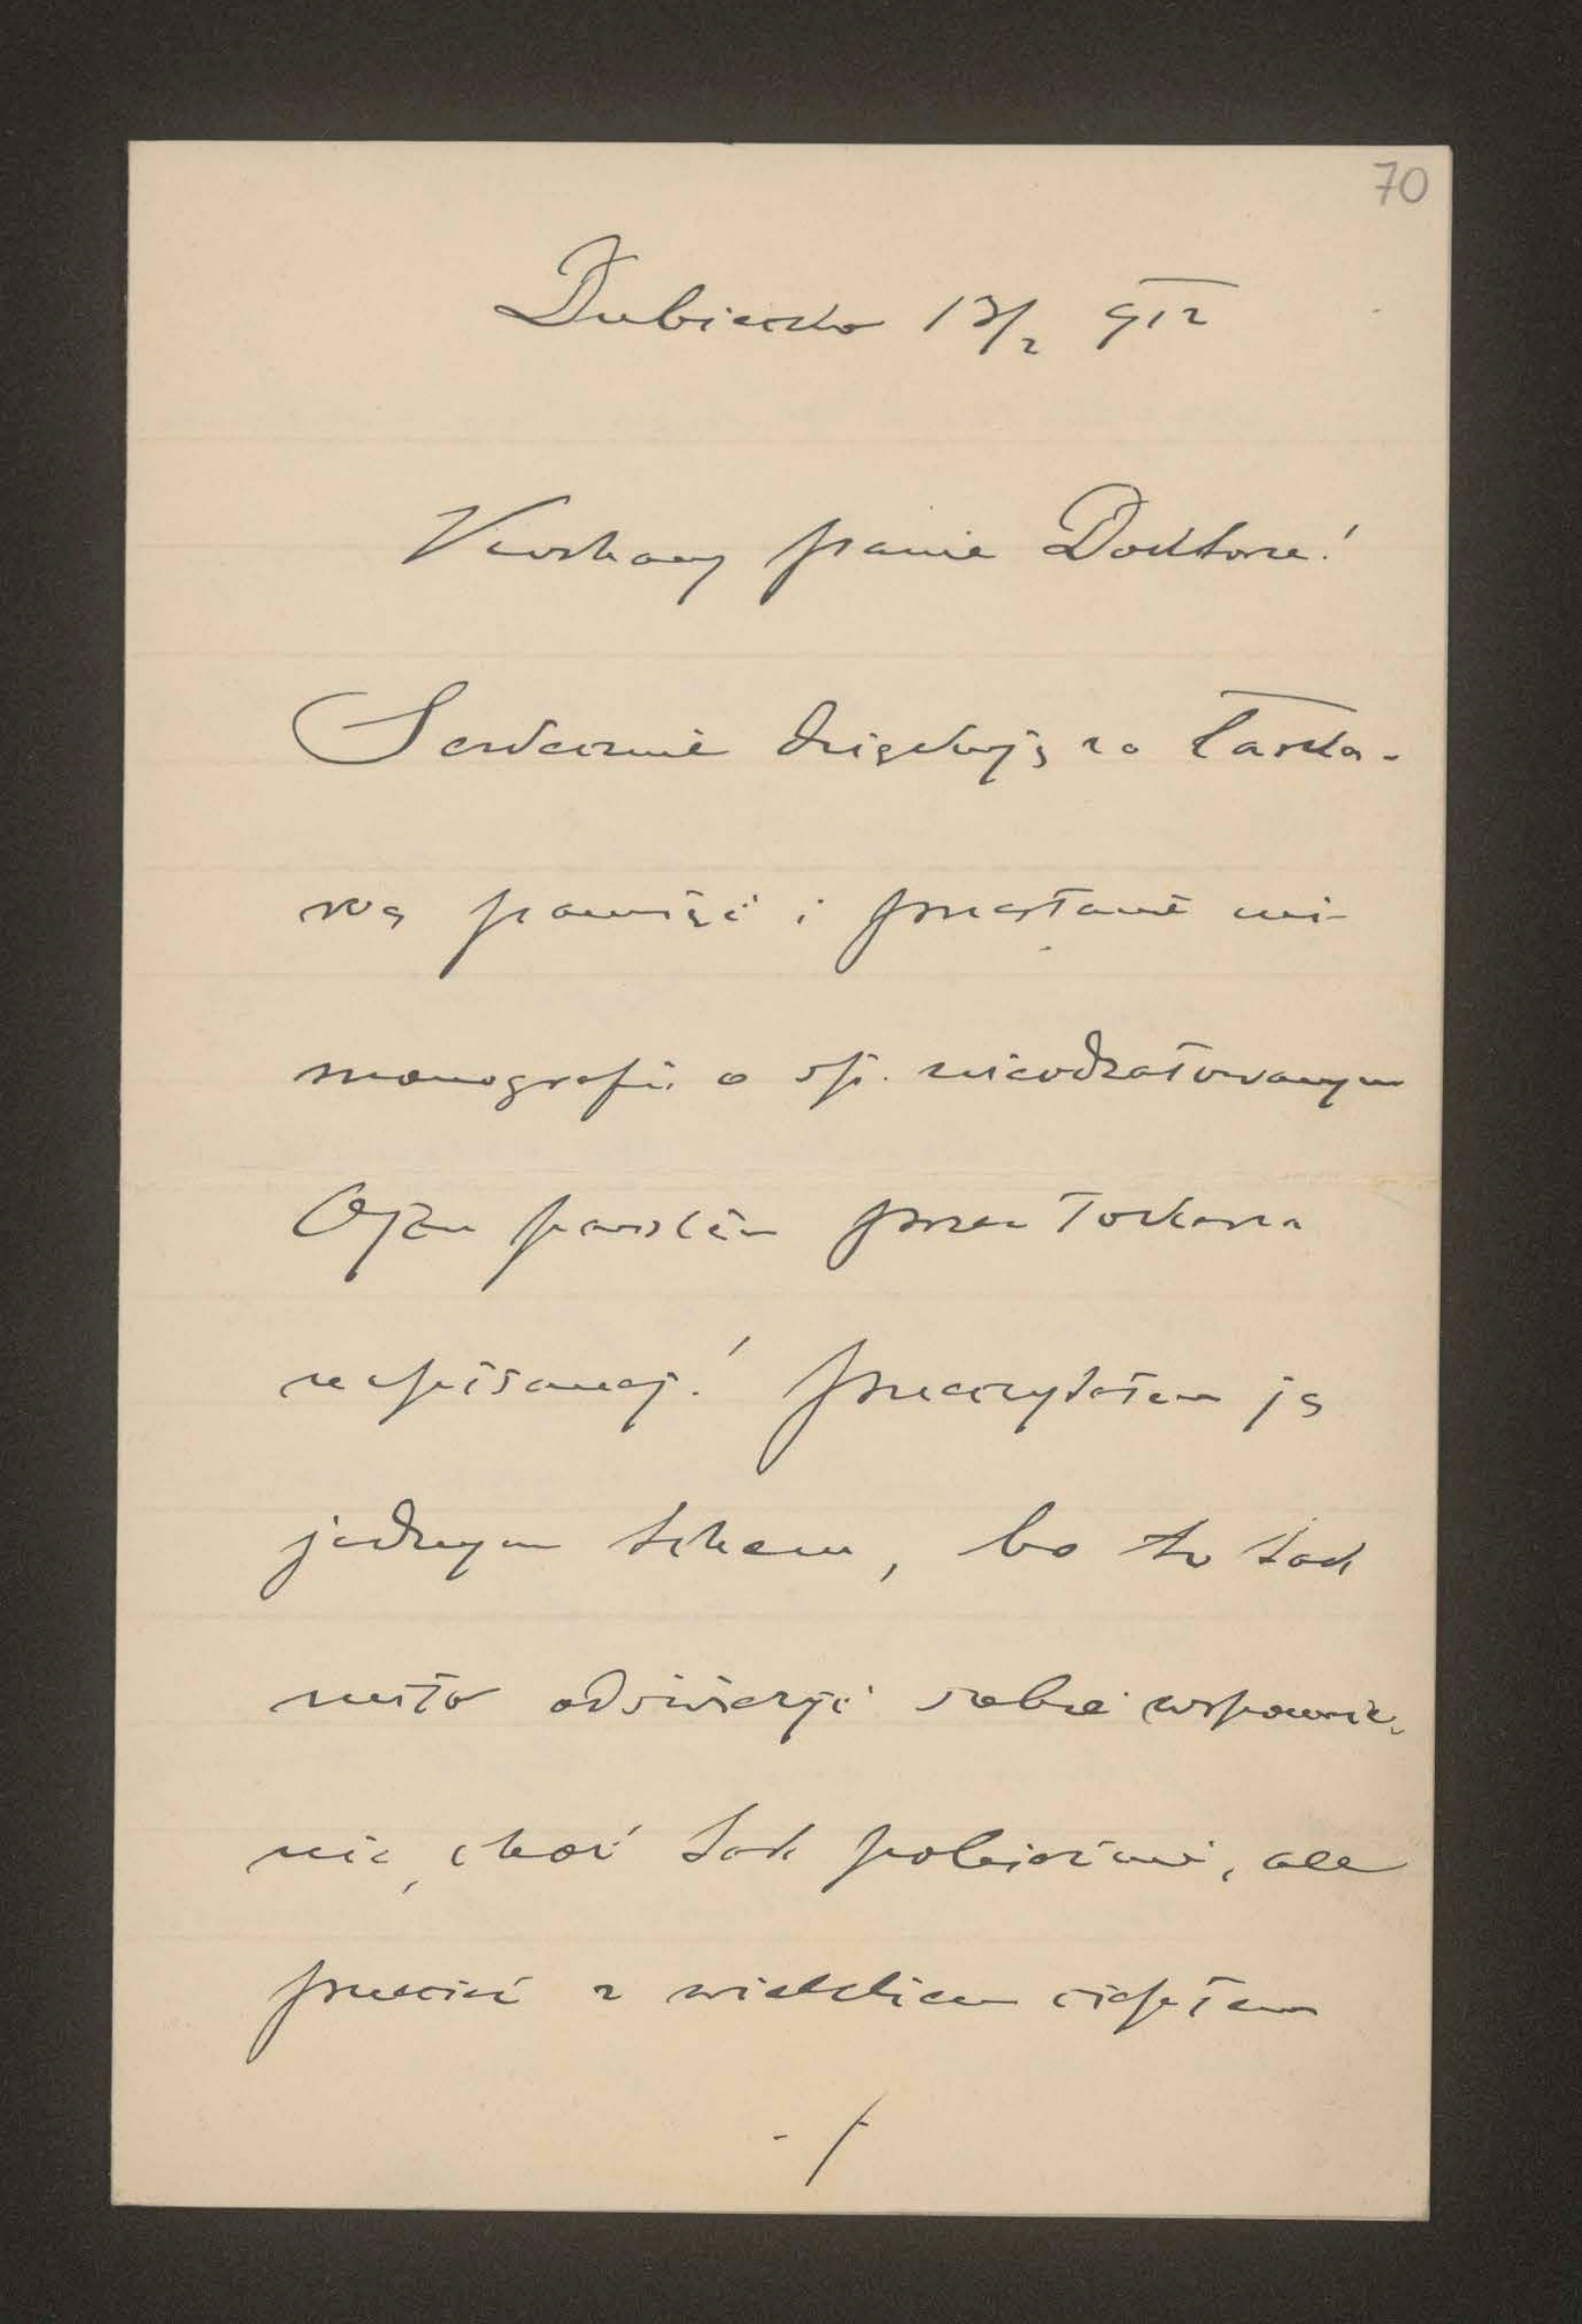 70
Dubiecko 13/2 912
Kochany panie Doktorze!
Serdecznie dziękuję za łaska-
wą pamięć i przesłanie mi
monografii o śp. nieodżałowanym
Ojcu pańskim przez
napisanej! Przeczytałem ją
jednym tchem, bo to tak
miło odświeżyć sobie wspomnie-
nie, choć tak pobieżnie, ale
przecież z wielkiem ciepłem
./